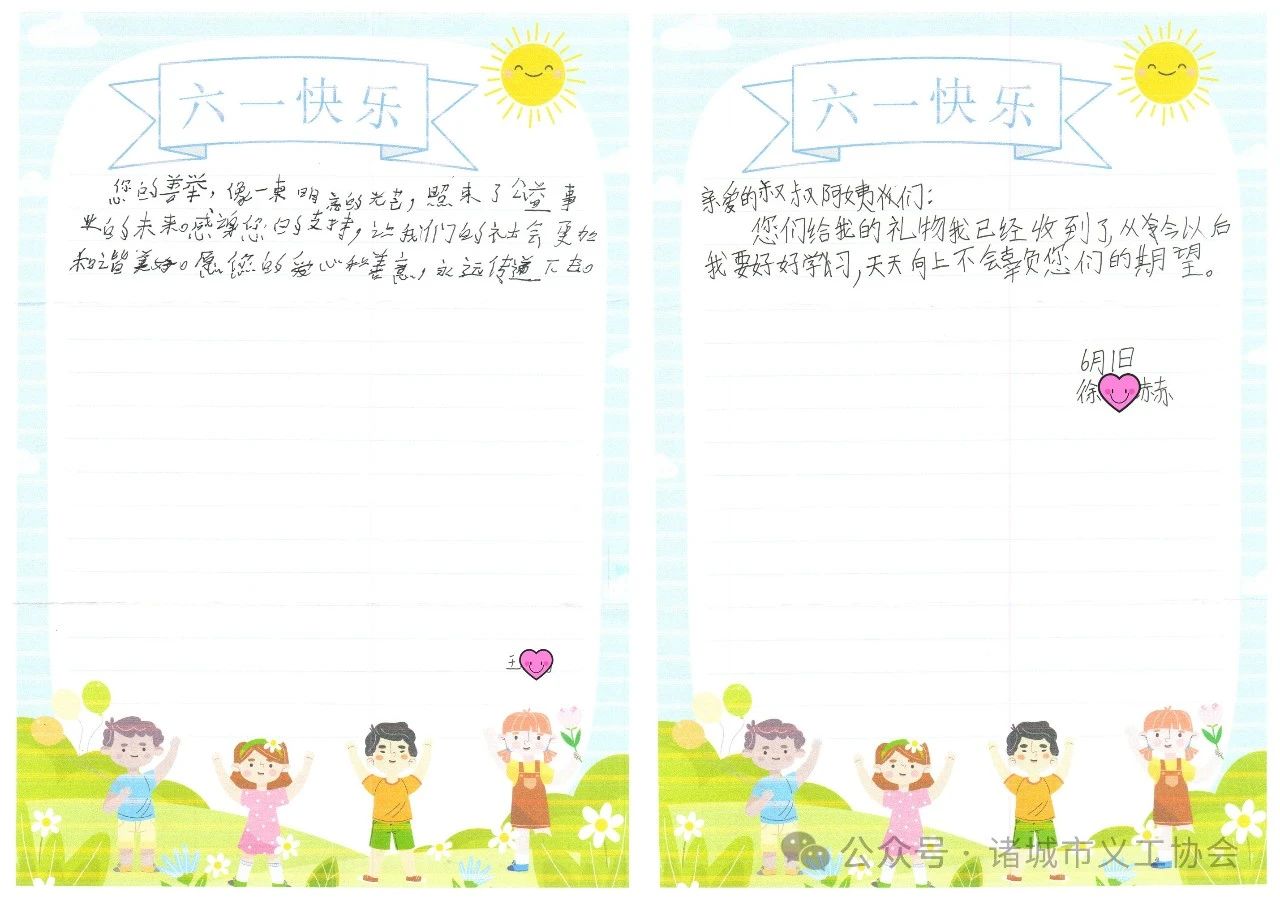 六一快乐
您的善举，像一束明亮的光芒，照来了公益事
业的未来。感谢您的支持，让我们的社会更加
和谐美好。愿您的爱心和善意，永远传递下去。
王
六一快乐
亲爱的叔叔阿姨们：
您们给我的礼物我已经收到了，从今以后
我要好好学习，天天向上不会辜负您们的期望。
6月1日
徐 赫
公众号·诸城市义工协会